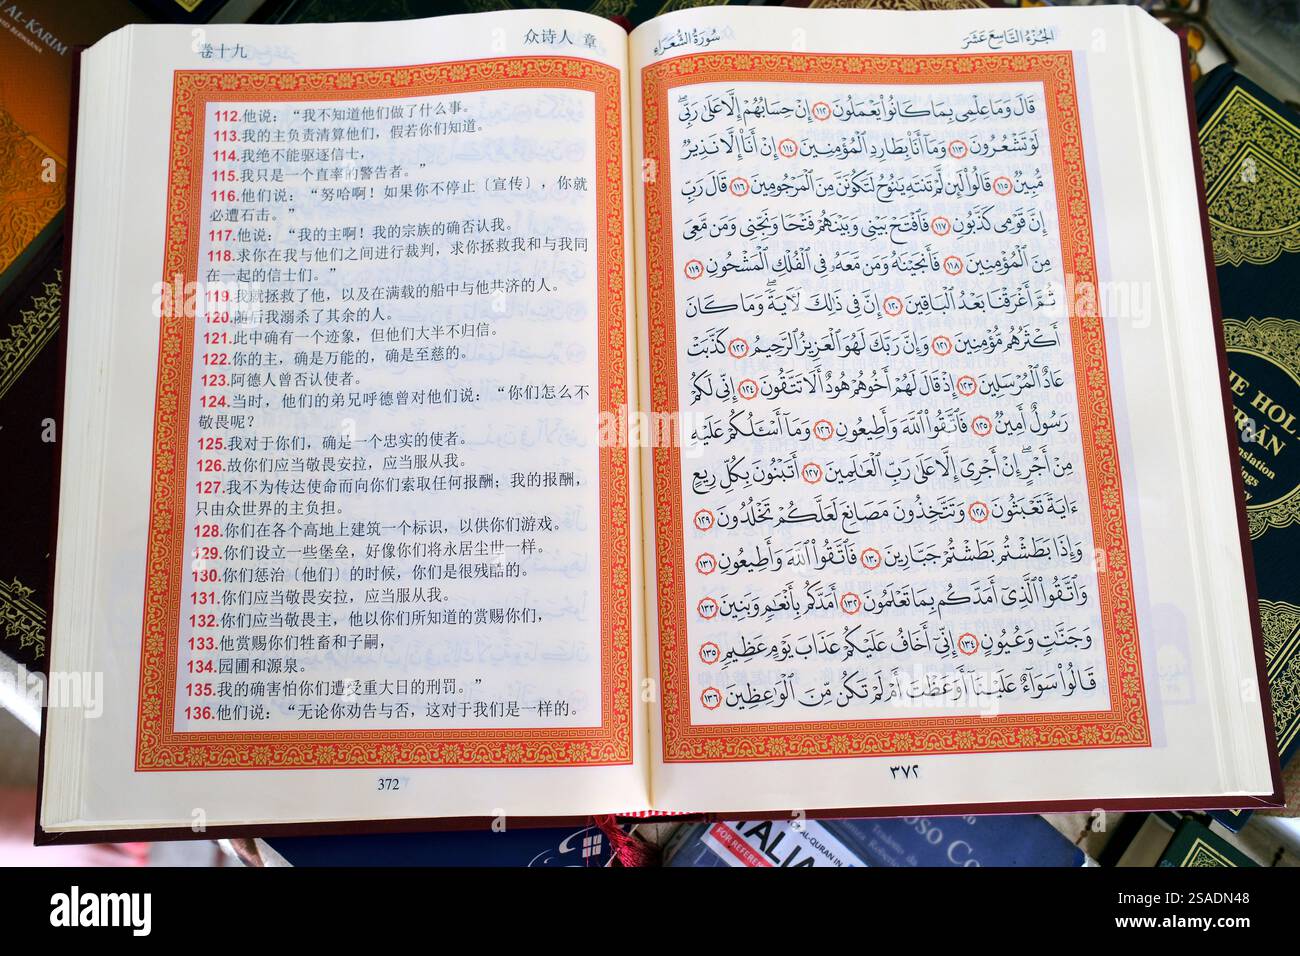 卷十九
众诗人 章
112.他说：“我不知道他们做了什么事。
113.我的主负责清算他们，假若你们知道。
114.我绝不能驱逐信士，
115.我只是一个直率的警告者。”
116.他们说：“努哈啊！如果你不停止〔宣传〕，你就
必遭石击。”
117.他说：“我的主啊！我的宗族的确否认我。
118.求你在我与他们之间进行裁判，求你拯救我和与我同
在一起的信士们。”
119.我就拯救了他，以及在满载的船中与他共济的人。
120.随后我溺杀了其余的人。
121.此中确有一个迹象，但他们大半不归信。
122.你的主，确是万能的，确是至慈的。
123.阿德人曾否认使者。
124.当时，他们的弟兄呼德曾对他们说：“你们怎么不
敬畏呢？
125.我对于你们，确是一个忠实的使者。
126.故你们应当敬畏安拉，应当服从我。
127.我不为传达使命而向你们索取任何报酬；我的报酬，
只由众世界的主负担。
128.你们在各个高地上建筑一个标识，以供你们游戏。
129.你们设立一些堡垒，好像你们将永居尘世一样。
130.你们惩治〔他们〕的时候，你们是很残酷的。
131.你们应当敬畏安拉，应当服从我。
132.你们应当敬畏主，他以你们所知道的赏赐你们，
133.他赏赐你们牲畜和子嗣，
134.园圃和源泉。
135.我的确害怕你们遭受重大日的刑罚。”
136.他们说：“无论你劝告与否，这对于我们是一样的。
372
سُورَةُ الشُّعَرَاءِ
الجُزْءُ التَّاسِعَ عَشَرَ
قَالَ وَمَا عِلْمِى بِمَا كَانُوا۟ يَعْمَلُونَ ١١٢ إِنْ حِسَابُهُمْ إِلَّا عَلَىٰ رَبِّى
لَوْ تَشْعُرُونَ ١١٣ وَمَآ أَنَا۠ بِطَارِدِ ٱلْمُؤْمِنِينَ ١١٤ إِنْ أَنَا۠ إِلَّا نَذِيرٌ
مُّبِينٌ ١١٥ قَالُوا۟ لَئِن لَّمْ تَنتَهِ يَٰنُوحُ لَتَكُونَنَّ مِنَ ٱلْمَرْجُومِينَ ١١٦ قَالَ رَبِّ
إِنَّ قَوْمِى كَذَّبُونِ ١١٧ فَٱفْتَحْ بَيْنِى وَبَيْنَهُمْ فَتْحًا وَنَجِّنِى وَمَن مَّعِىَ
مِنَ ٱلْمُؤْمِنِينَ ١١٨ فَأَنجَيْنَٰهُ وَمَن مَّعَهُۥ فِى ٱلْفُلْكِ ٱلْمَشْحُونِ ١١٩
ثُمَّ أَغْرَقْنَا بَعْدُ ٱلْبَاقِينَ ١٢٠ إِنَّ فِى ذَٰلِكَ لَءَايَةً وَمَا كَانَ
أَكْثَرُهُم مُّؤْمِنِينَ ١٢١ وَإِنَّ رَبَّكَ لَهُوَ ٱلْعَزِيزُ ٱلرَّحِيمُ ١٢٢ كَذَّبَتْ
عَادٌ ٱلْمُرْسَلِينَ ١٢٣ إِذْ قَالَ لَهُمْ أَخُوهُمْ هُودٌ أَلَا تَتَّقُونَ ١٢٤ إِنِّى لَكُمْ
رَسُولٌ أَمِينٌ ١٢٥ فَٱتَّقُوا۟ ٱللَّهَ وَأَطِيعُونِ ١٢٦ وَمَآ أَسْـَٔلُكُمْ عَلَيْهِ
مِنْ أَجْرٍ إِنْ أَجْرِىَ إِلَّا عَلَىٰ رَبِّ ٱلْعَٰلَمِينَ ١٢٧ أَتَبْنُونَ بِكُلِّ رِيعٍ
ءَايَةً تَعْبَثُونَ ١٢٨ وَتَتَّخِذُونَ مَصَانِعَ لَعَلَّكُمْ تَخْلُدُونَ ١٢٩
وَإِذَا بَطَشْتُم بَطَشْتُمْ جَبَّارِينَ ١٣٠ فَٱتَّقُوا۟ ٱللَّهَ وَأَطِيعُونِ ١٣١
وَٱتَّقُوا۟ ٱلَّذِىٓ أَمَدَّكُم بِمَا تَعْلَمُونَ ١٣٢ أَمَدَّكُم بِأَنْعَٰمٍ وَبَنِينَ ١٣٣
وَجَنَّٰتٍ وَعُيُونٍ ١٣٤ إِنِّىٓ أَخَافُ عَلَيْكُمْ عَذَابَ يَوْمٍ عَظِيمٍ ١٣٥
قَالُوا۟ سَوَآءٌ عَلَيْنَآ أَوَعَظْتَ أَمْ لَمْ تَكُن مِّنَ ٱلْوَٰعِظِينَ ١٣٦
٣٧٢
AL-KARIM
THE HOL
alamy
Image ID: 2SADN48
www.alamy.com